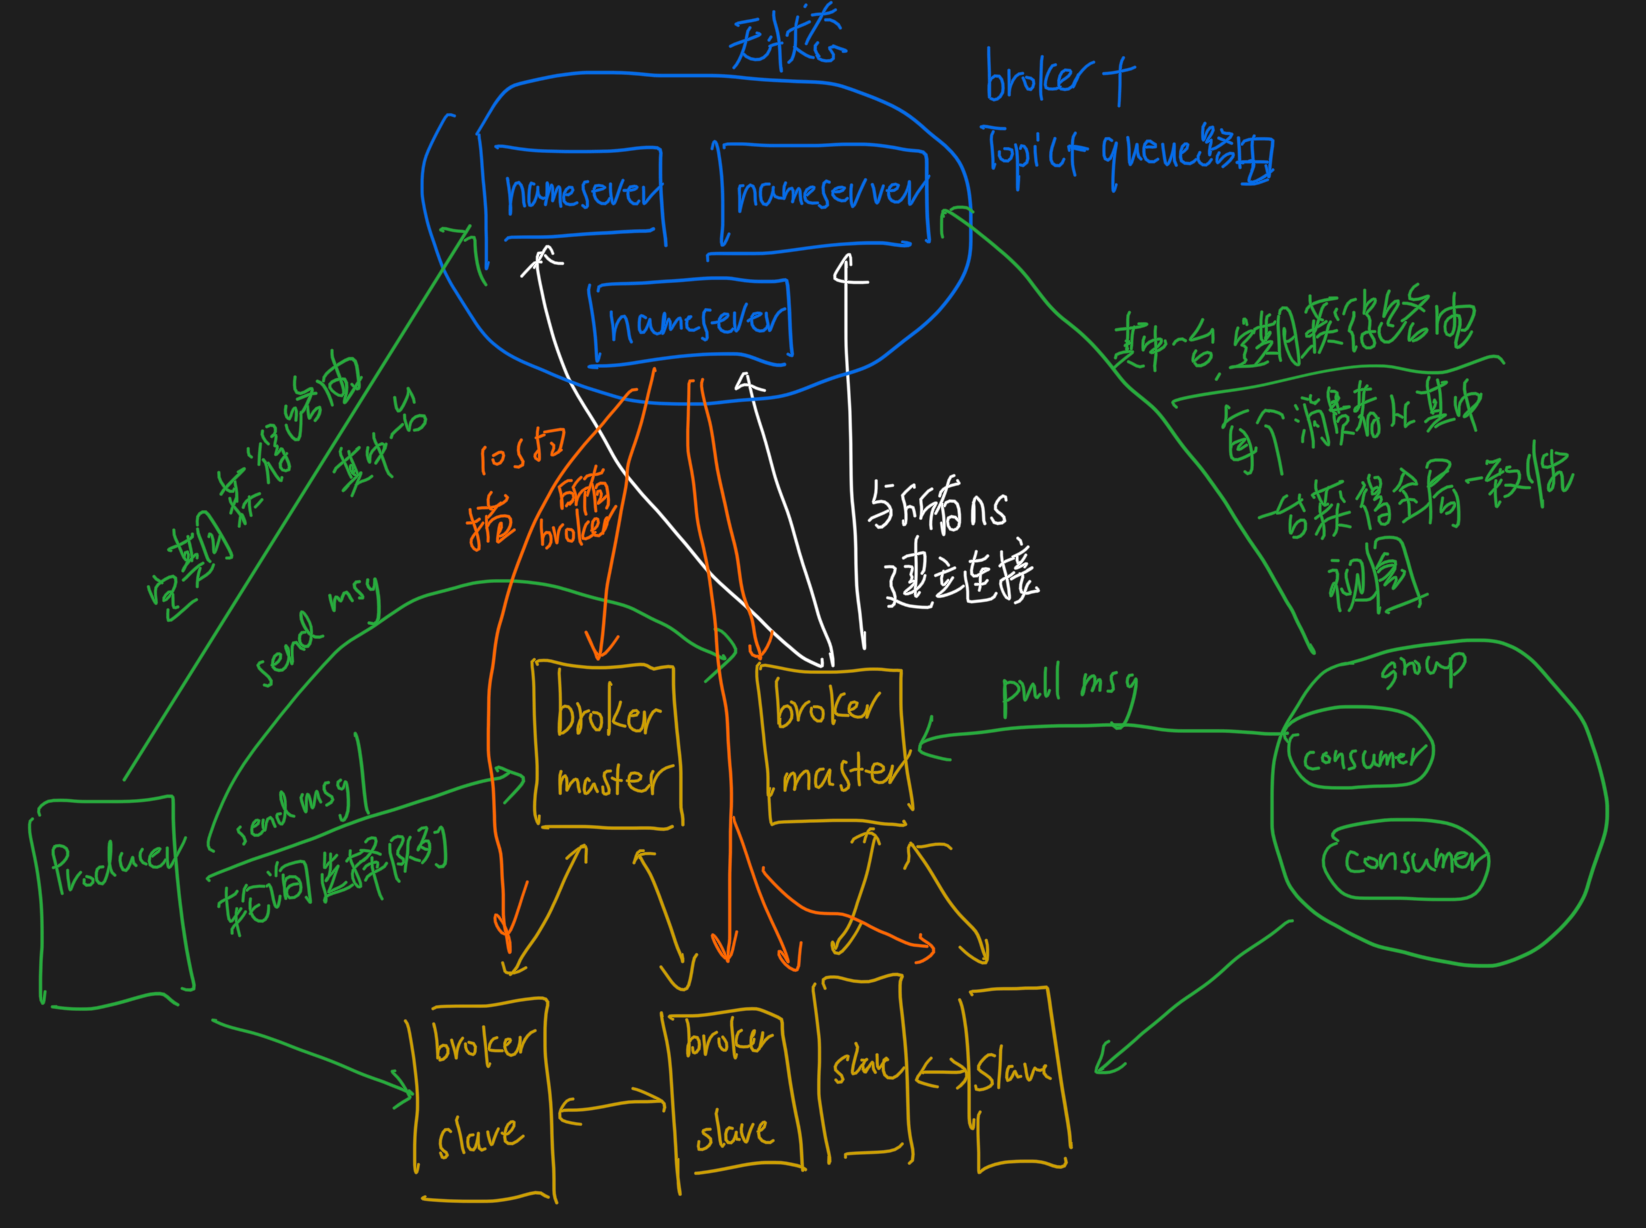 无状态
broker +
Topic+ queue路由
namesever
nameserver
namesever
定期获得路由
其中一台
10s扫
描
所有
broker
与所有ns
建立连接
其中一台,定期获得路由
每个消费者从其中
一台获得全局一致性
视图
send msg
send msg
轮询选择队列
Producer
broker
master
broker
master
pull msg
group
consumer
consumer
broker
slave
broker
slave
slave
Slave